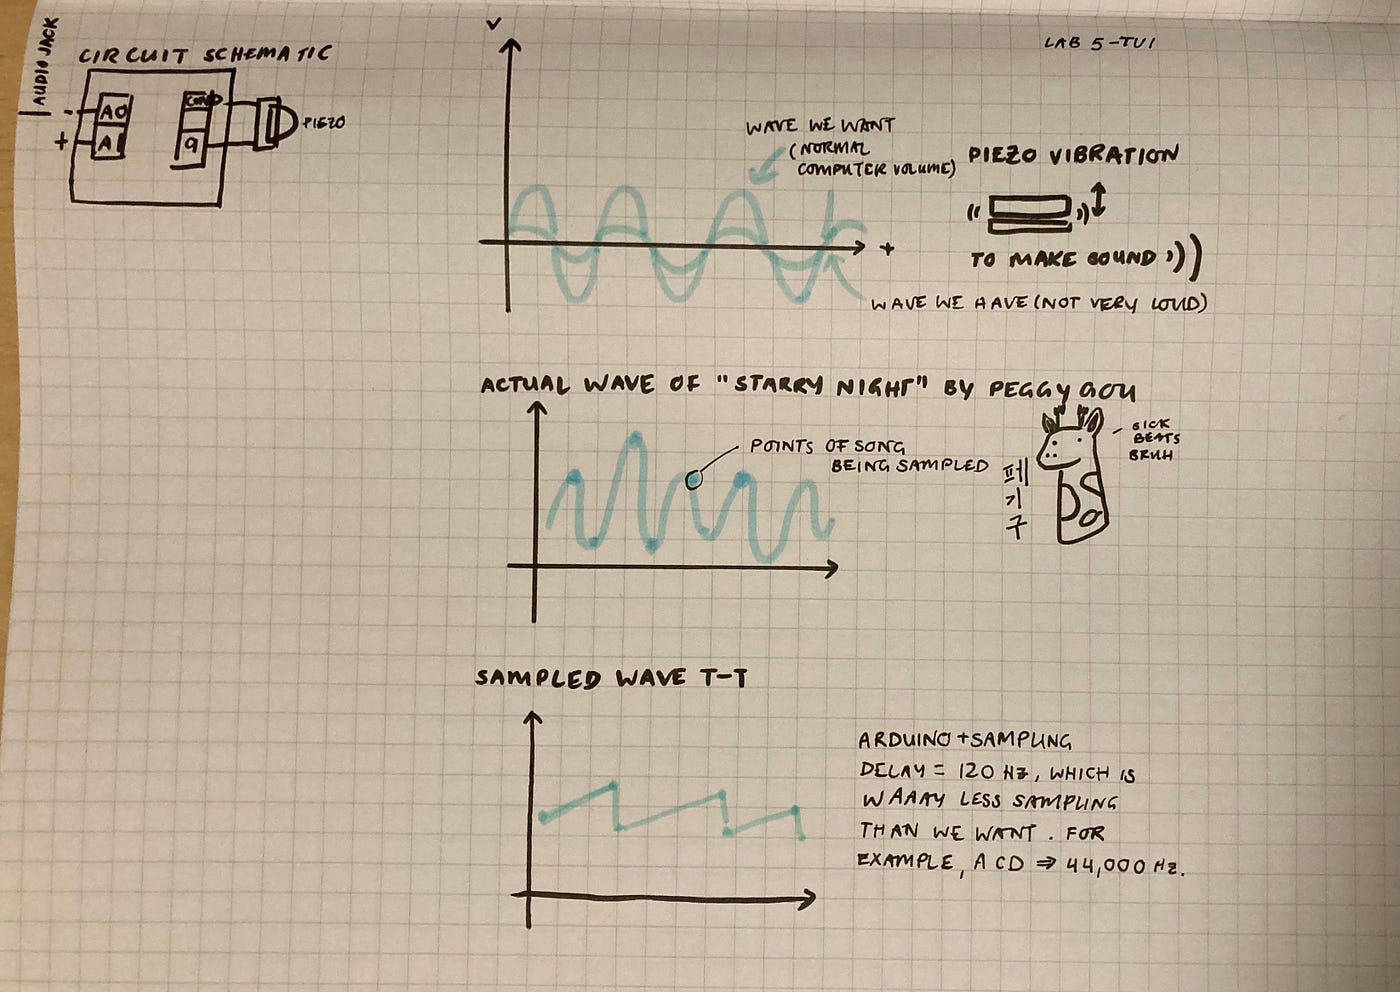 AUDIO JACK
CIRCUIT SCHEMATIC
- A0
+ A1
GND
9
PIEZO
V
LAB 5-TUI
WAVE WE WANT
(NORMAL
COMPUTER VOLUME)
+
PIEZO VIBRATION
TO MAKE SOUND
WAVE WE HAVE (NOT VERY LOUD)
ACTUAL WAVE OF "STARRY NIGHT" BY PEGGY GOU
POINTS OF SONG
BEING SAMPLED
페
기
구
SICK
BEATS
BRUH
SAMPLED WAVE T-T
ARDUINO + SAMPLING
DELAY = 120 HZ, WHICH IS
WAAAY LESS SAMPLING
THAN WE WANT. FOR
EXAMPLE, A CD ⇒ 44,000 HZ.